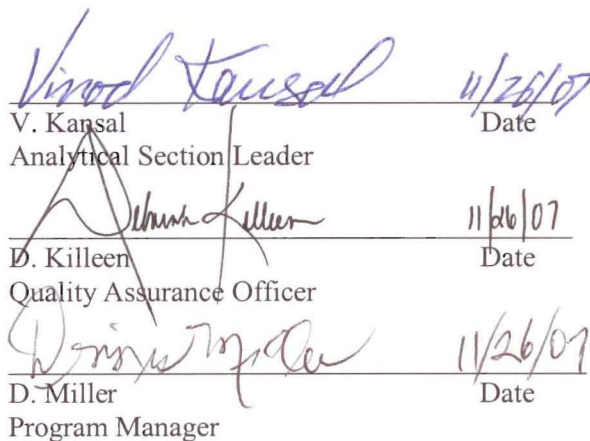 Vinod Kansal 11/26/07
V. Kansal Date
Analytical Section Leader
Deborah Killeen 11/26/07
D. Killeen Date
Quality Assurance Officer
Dennis Miller 11/26/07
D. Miller Date
Program Manager